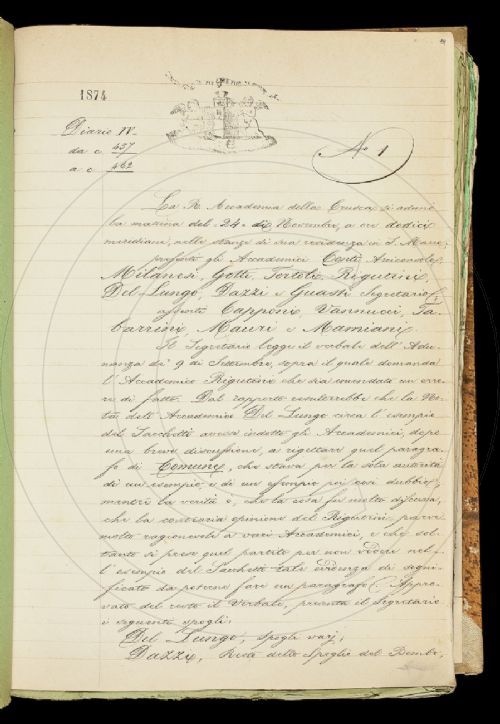 1874
Diario IV
da c. 457
a c. 462
N.° 1
La R. Accademia della Crusca si adunò
la mattina del 24 di Novembre, a ore dodici
meridiane, nelle stanze di sua residenza in S. Marco,
presenti gli Accademici Conti, Arciconsolo,
Milanesi, Gotti, Tortoli, Rigutini,
Del-Lungo, Dazzi e Guasti Segretario;
assenti Capponi, Vannucci, Ta-
barrini, Mauri e Mamiani.
Il Segretario legge il verbale dell'Adu-
nanza de' 9 di Settembre, sopra il quale domanda
l'Accademico Rigutini che sia emendato un erro-
re di fatto. Dal rapporto resulterebbe che la No-
ta dell'Accademico Del-Lungo circa l'esempio
del Sacchetti avesse indotto gli Accademici, dopo
una breve discussione, a rigettare quel paragra-
fo di Comune, che stava per la sola autorità
di un esempio, e di un esempio per così dubbio;
mentre la verità è, che la cosa fu molto discussa,
che la contraria opinione del Rigutini parve
molto ragionevole a vari Accademici, e che sol-
tanto si prese quel partito per non vedere nel-
l'esempio del Sacchetti tale evidenza di signi-
ficato da potersene fare un paragrafo. Appro-
vato del resto il Verbale, presenta il Segretario
i seguenti spogli:
Del-Lungo, Spogli varj;
Dazzi, Resto dello Spoglio del Bembo;